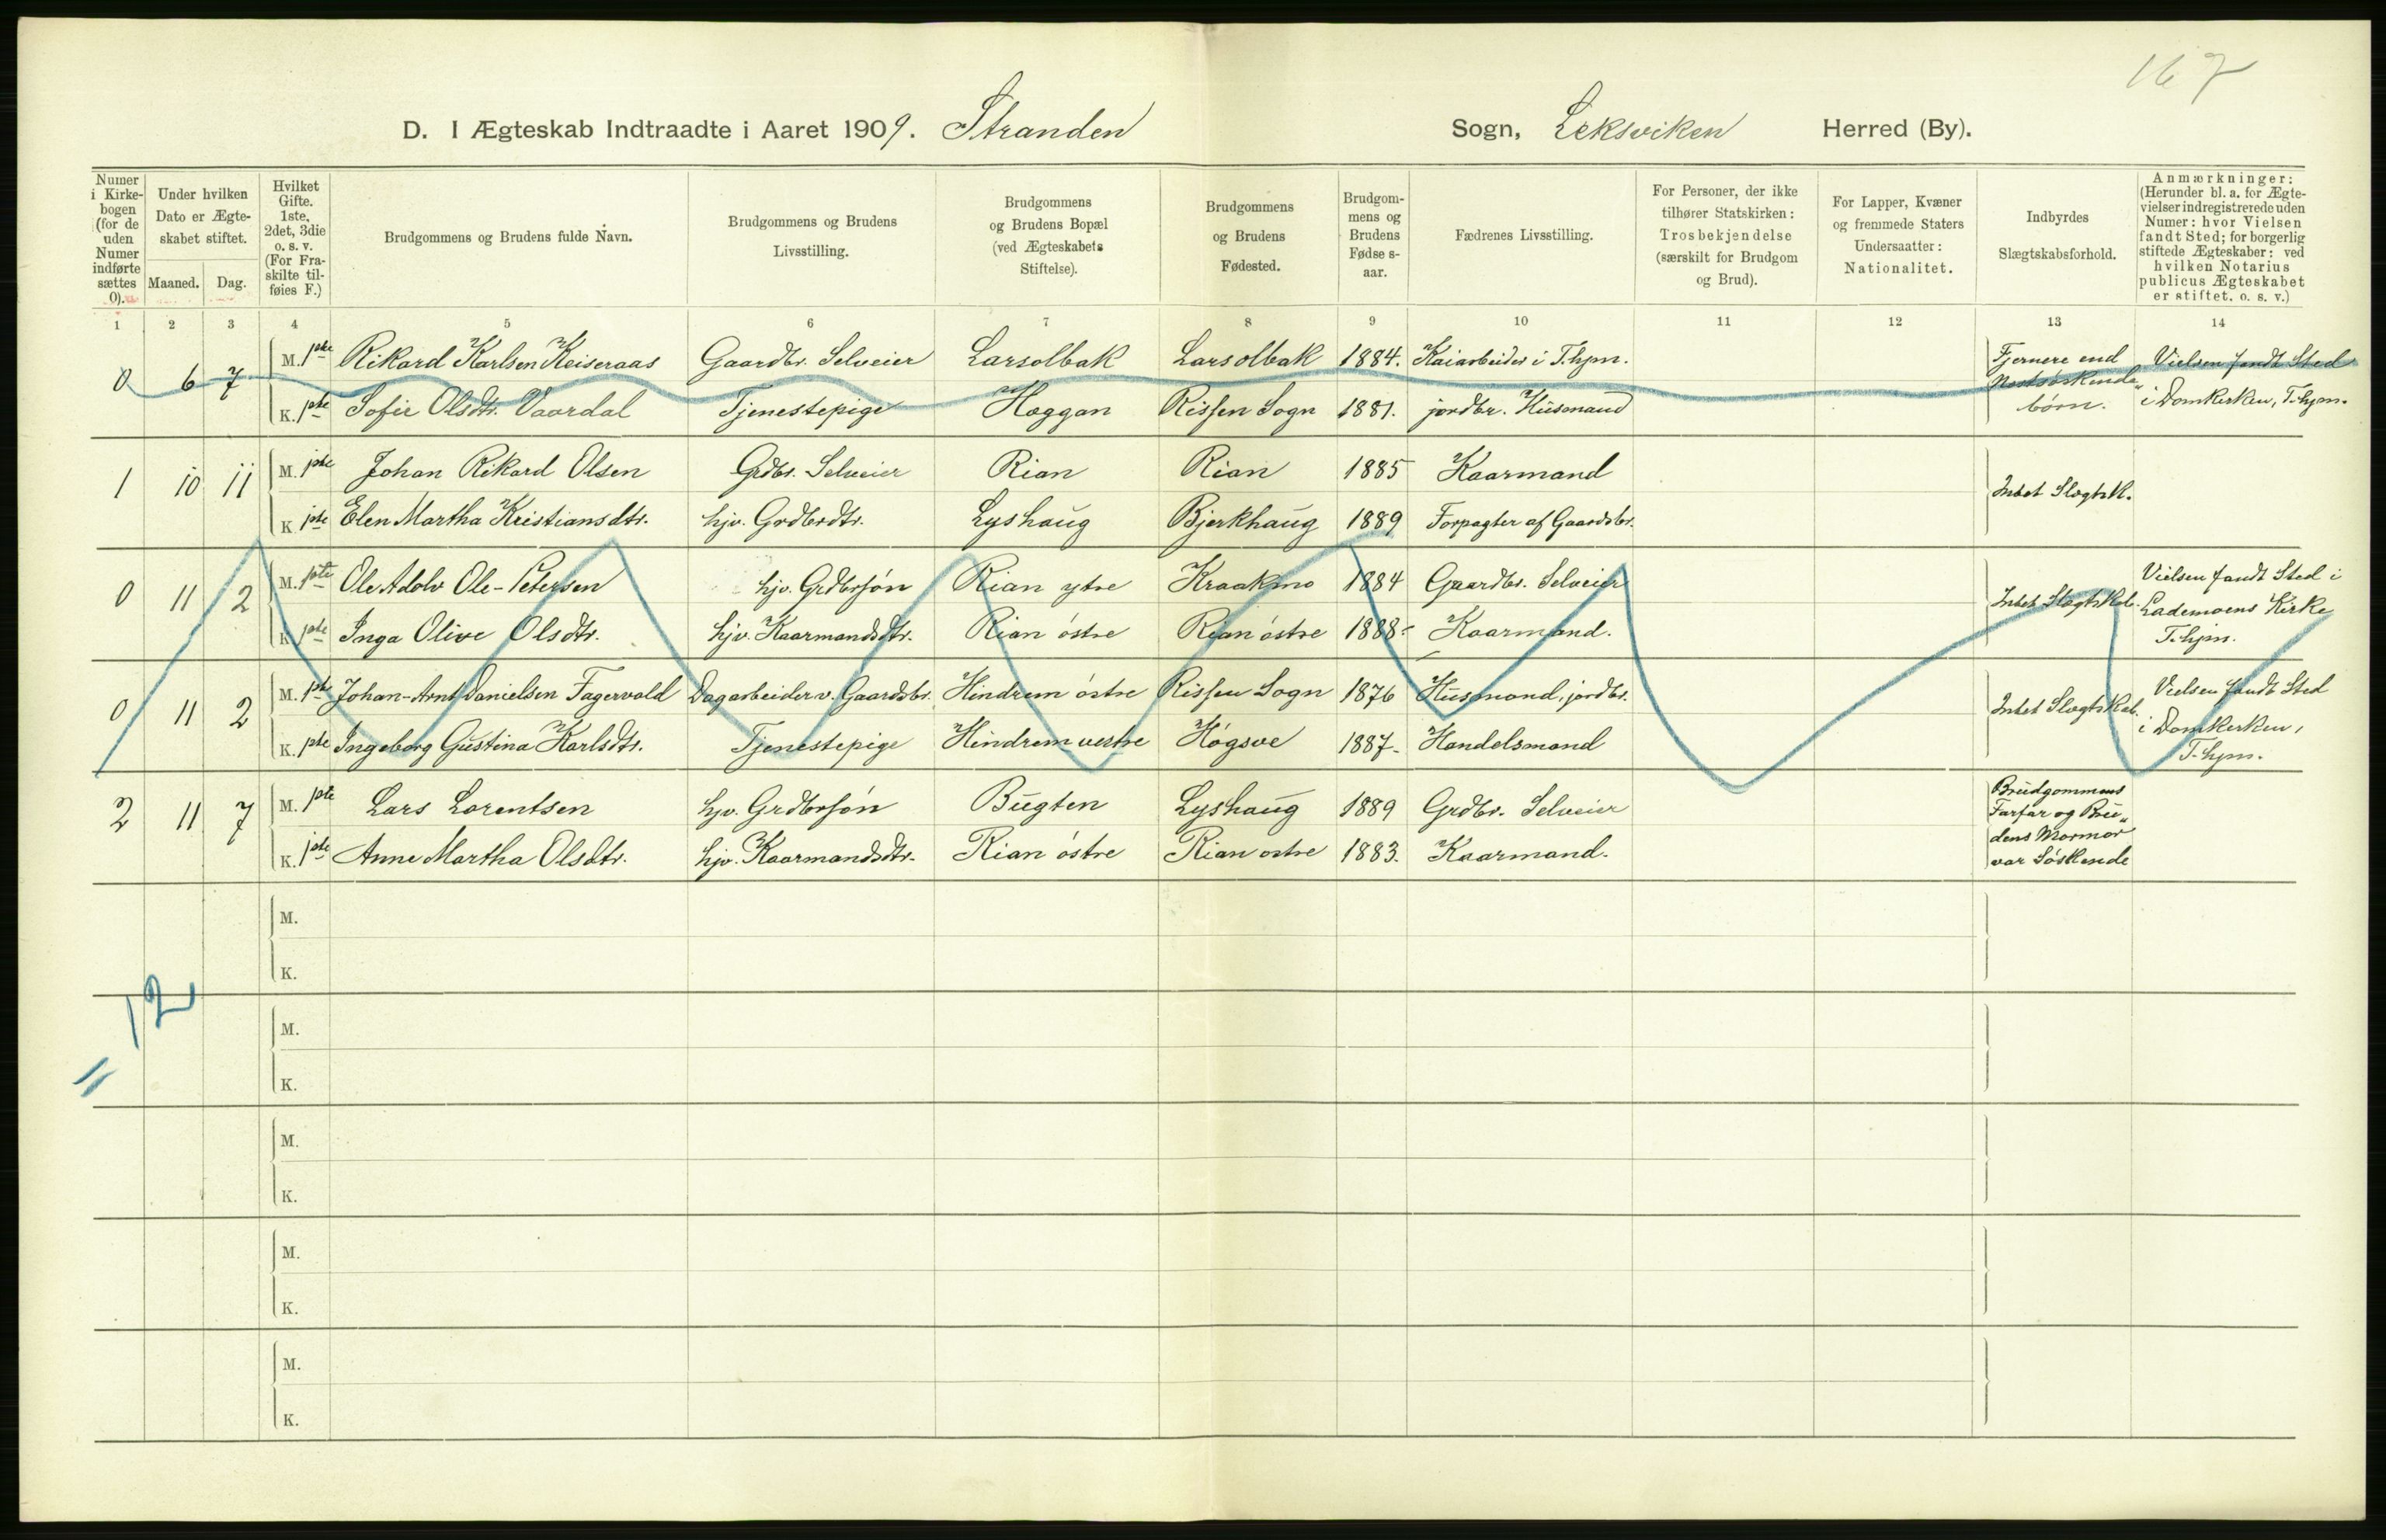 167
D. I Ægteskab Indtraadte i Aaret 1909. Stranden Sogn, Leksviken Herred (By).
Numer i Kirkebogen (for de uden Numer indførte sættes 0).
Under hvilken Dato er Ægteskabet stiftet.
Maaned. Dag.
Hvilket Gifte. 1ste, 2det, 3die o. s. v. (For Fraskilte tilføies F.)
Brudgommens og Brudens fulde Navn.
Brudgommens og Brudens Livsstilling.
Brudgommens og Brudens Bopæl (ved Ægteskabets Stiftelse).
Brudgommens og Brudens Fødested.
Brudgommens og Brudens Fødselsaar.
Fædrenes Livsstilling.
For Personer, der ikke tilhører Statskirken: Trosbekjendelse (særskilt for Brudgom og Brud).
For Lapper, Kvæner og fremmede Staters Undersaatter: Nationalitet.
Indbyrdes Slægtskabsforhold.
Anmærkninger: (Herunder bl. a. for Ægtevielser indregistrerede uden Numer: hvor Vielsen fandt Sted; for borgerlig stiftede Ægteskaber: ved hvilken Notarius publicus Ægteskabet er stiftet. o. s. v.)
1 2 3 4 5 6 7 8 9 10 11 12 13 14
0 6 7 M. 1ste Rikard Karlsen Keiseraas Gaardbr. Selveier Larsolbak Larsolbak 1884. Kaiarbeider i T.hjm. Fjernere end Næstsøskendebørn. Vielsen fandt Sted i Domkirken, T.hjm.
K. 1ste Sofie Olsdtr. Vaardal Tjenestepige Haggan Rissen Sogn 1881. jordbr. Husmand
1 10 11 M. 1ste Johan Rikard Olsen Grdbr. Selveier Rian Rian 1885 Kaarmand Intet Slægtsk.
K 1ste Elen Martha Kristiansdtr. hjv. Grdbrdtr. Lyshaug Bjerkhaug 1889 Forpagter af Gaardsbr.
0 11 2 M. 1ste Ole Adolv Ole-Petersen hjv. Grdbrsøn Rian ytre Kraakmo 1884 Gaardbr. Selveier Intet Slægtskab. Vielsen fandt Sted i Lademoens Kirke T.hjm.
K 1ste Inga Olive Olsdtr. hjv. Kaarmandsdtr. Rian østre Rian østre 1888. Kaarmand.
0 11 2 M. 1ste Johan-Arnt Danielsen Fagervold Dagarbeider v. Gaardsbr. Hindrem østre Rissen Sogn 1876 Husmand, jordbr. Intet Slægtskab. Vielsen fandt Sted i Domkirken, T.hjm.
K. 1ste Ingeborg Gustina Karlsdtr. Tjenestepige Hindrem vestre Høgsve 1887. Handelsmand
2 11 7 M. 1ste Lars Lorentsen hjv. Grdbrsøn Bugten Lyshaug 1889 Grdbr. Selveier Brudgommens Farfar og Brudens Mormor var Søskende
K. 1ste Anne Martha Olsdtr. hjv. Kaarmandsdtr. Rian østre Rian østre 1883. Kaarmand.
M.
K.
12
M.
K.
M.
K.
M.
K.
M.
K.